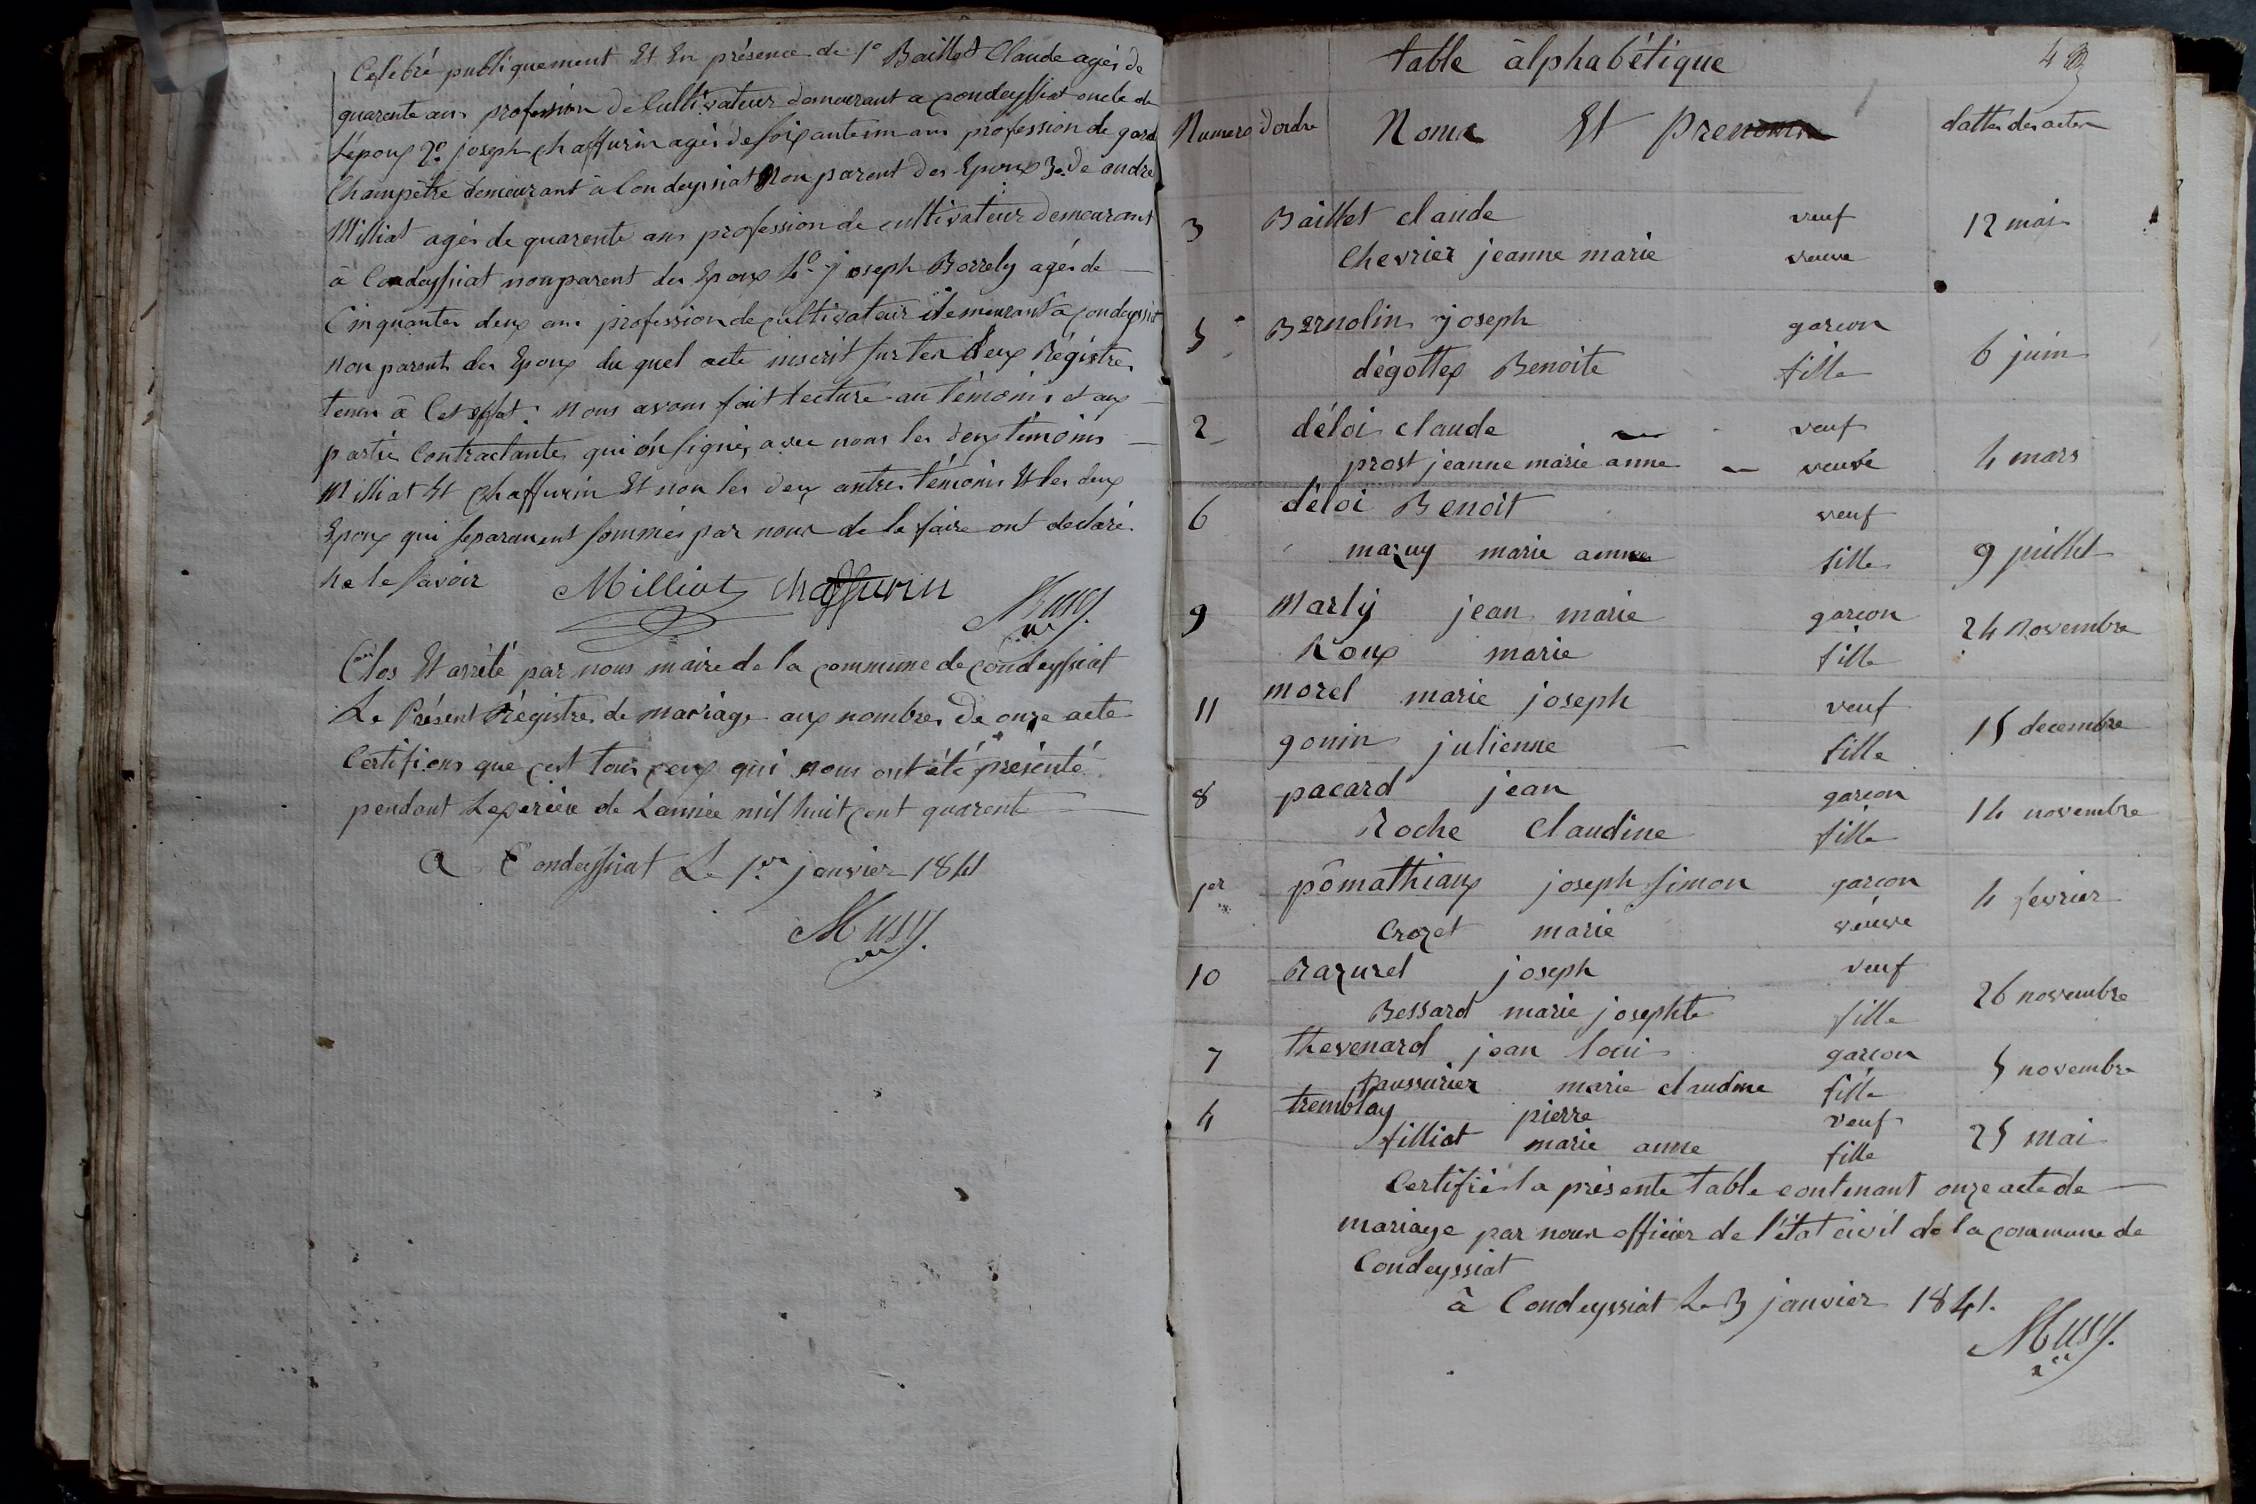 Celébré publiquement Et En présence de 1º Baillet Claude agés de
quarente ans profession De Cultivateur demeurant a Condeyssiat oncle de
L'epoux 2º joseph chaffurin agés de soixante un ans profession de gard
Champêtre demeurant à Condeyssiat Non parent des Epoux 3º de andre
Milliat agés de quarente ans profession de cultivateur demeurant
à Condeyssiat non parent des Epoux 4º joseph Borrely agés de
Cinquantes deux ans profession de cultivateur demeurant à Condeyssiat
Non parent des Epoux du quel acte inscrit sur les deux Régistres
tenus à Cet effet. Nous avons fait lecture au témoins et aux
partie Contractantes qui on signés avec nous les deux témoins
Milliat Et Chaffurin Et non les deux autres témoins Et les deux
Epoux qui separement sommés par nous de le faire ont declaré
Ne le savoir Milliat Chaffurin Musy
Clos Et arrêté par nous maire de la commune de Condeyssiat
Le Présent Régistres de mariage aux nombres De onze acte
Certifions que cest tous ceux qui nous ont été présenté
pendant Le de Lannée mil huit cent quarent
A Condeyssiat Le 1er janvier 1841
Musy.
table âlphabétique 48
Numero dordre Noms Et Prenoms dattes des actes
3 Baillet claude veuf 12 mai
Chevrier jeanne marie veuve
5 Bernolin joseph garcon 6 juin
dégottex Benoite fille
2 déloi claude veuf
prost jeanne marie anne veuve 4 mars
6 déloi Benoit veuf
mazuy marie annes fille 9 juillet
9 Marly jean marie garcon 24 Novembre
Roux marie fille
11 morel marie joseph veuf 15 decembre
gonin julienne fille
8 pacard jean garcon 14 novembre
Roche Claudine fille
1er pômathiaux joseph simon garcon 4 fevrier
Crozet marie veuve
10 Razurel joseph veuf 26 novembre
Bessard marie josephte fille
7 thevenard jean loui garcon 5 novembre
paussurier marie claudine fille
4 tremblay pierre veuf 25 mai
filliat marie anne fille
Certifié la présente table contenant onze acte de
mariage par nous officier de l'état civil de la commune de
Condeyssiat
à Condeyssiat Le 3 janvier 1841.
Musy.